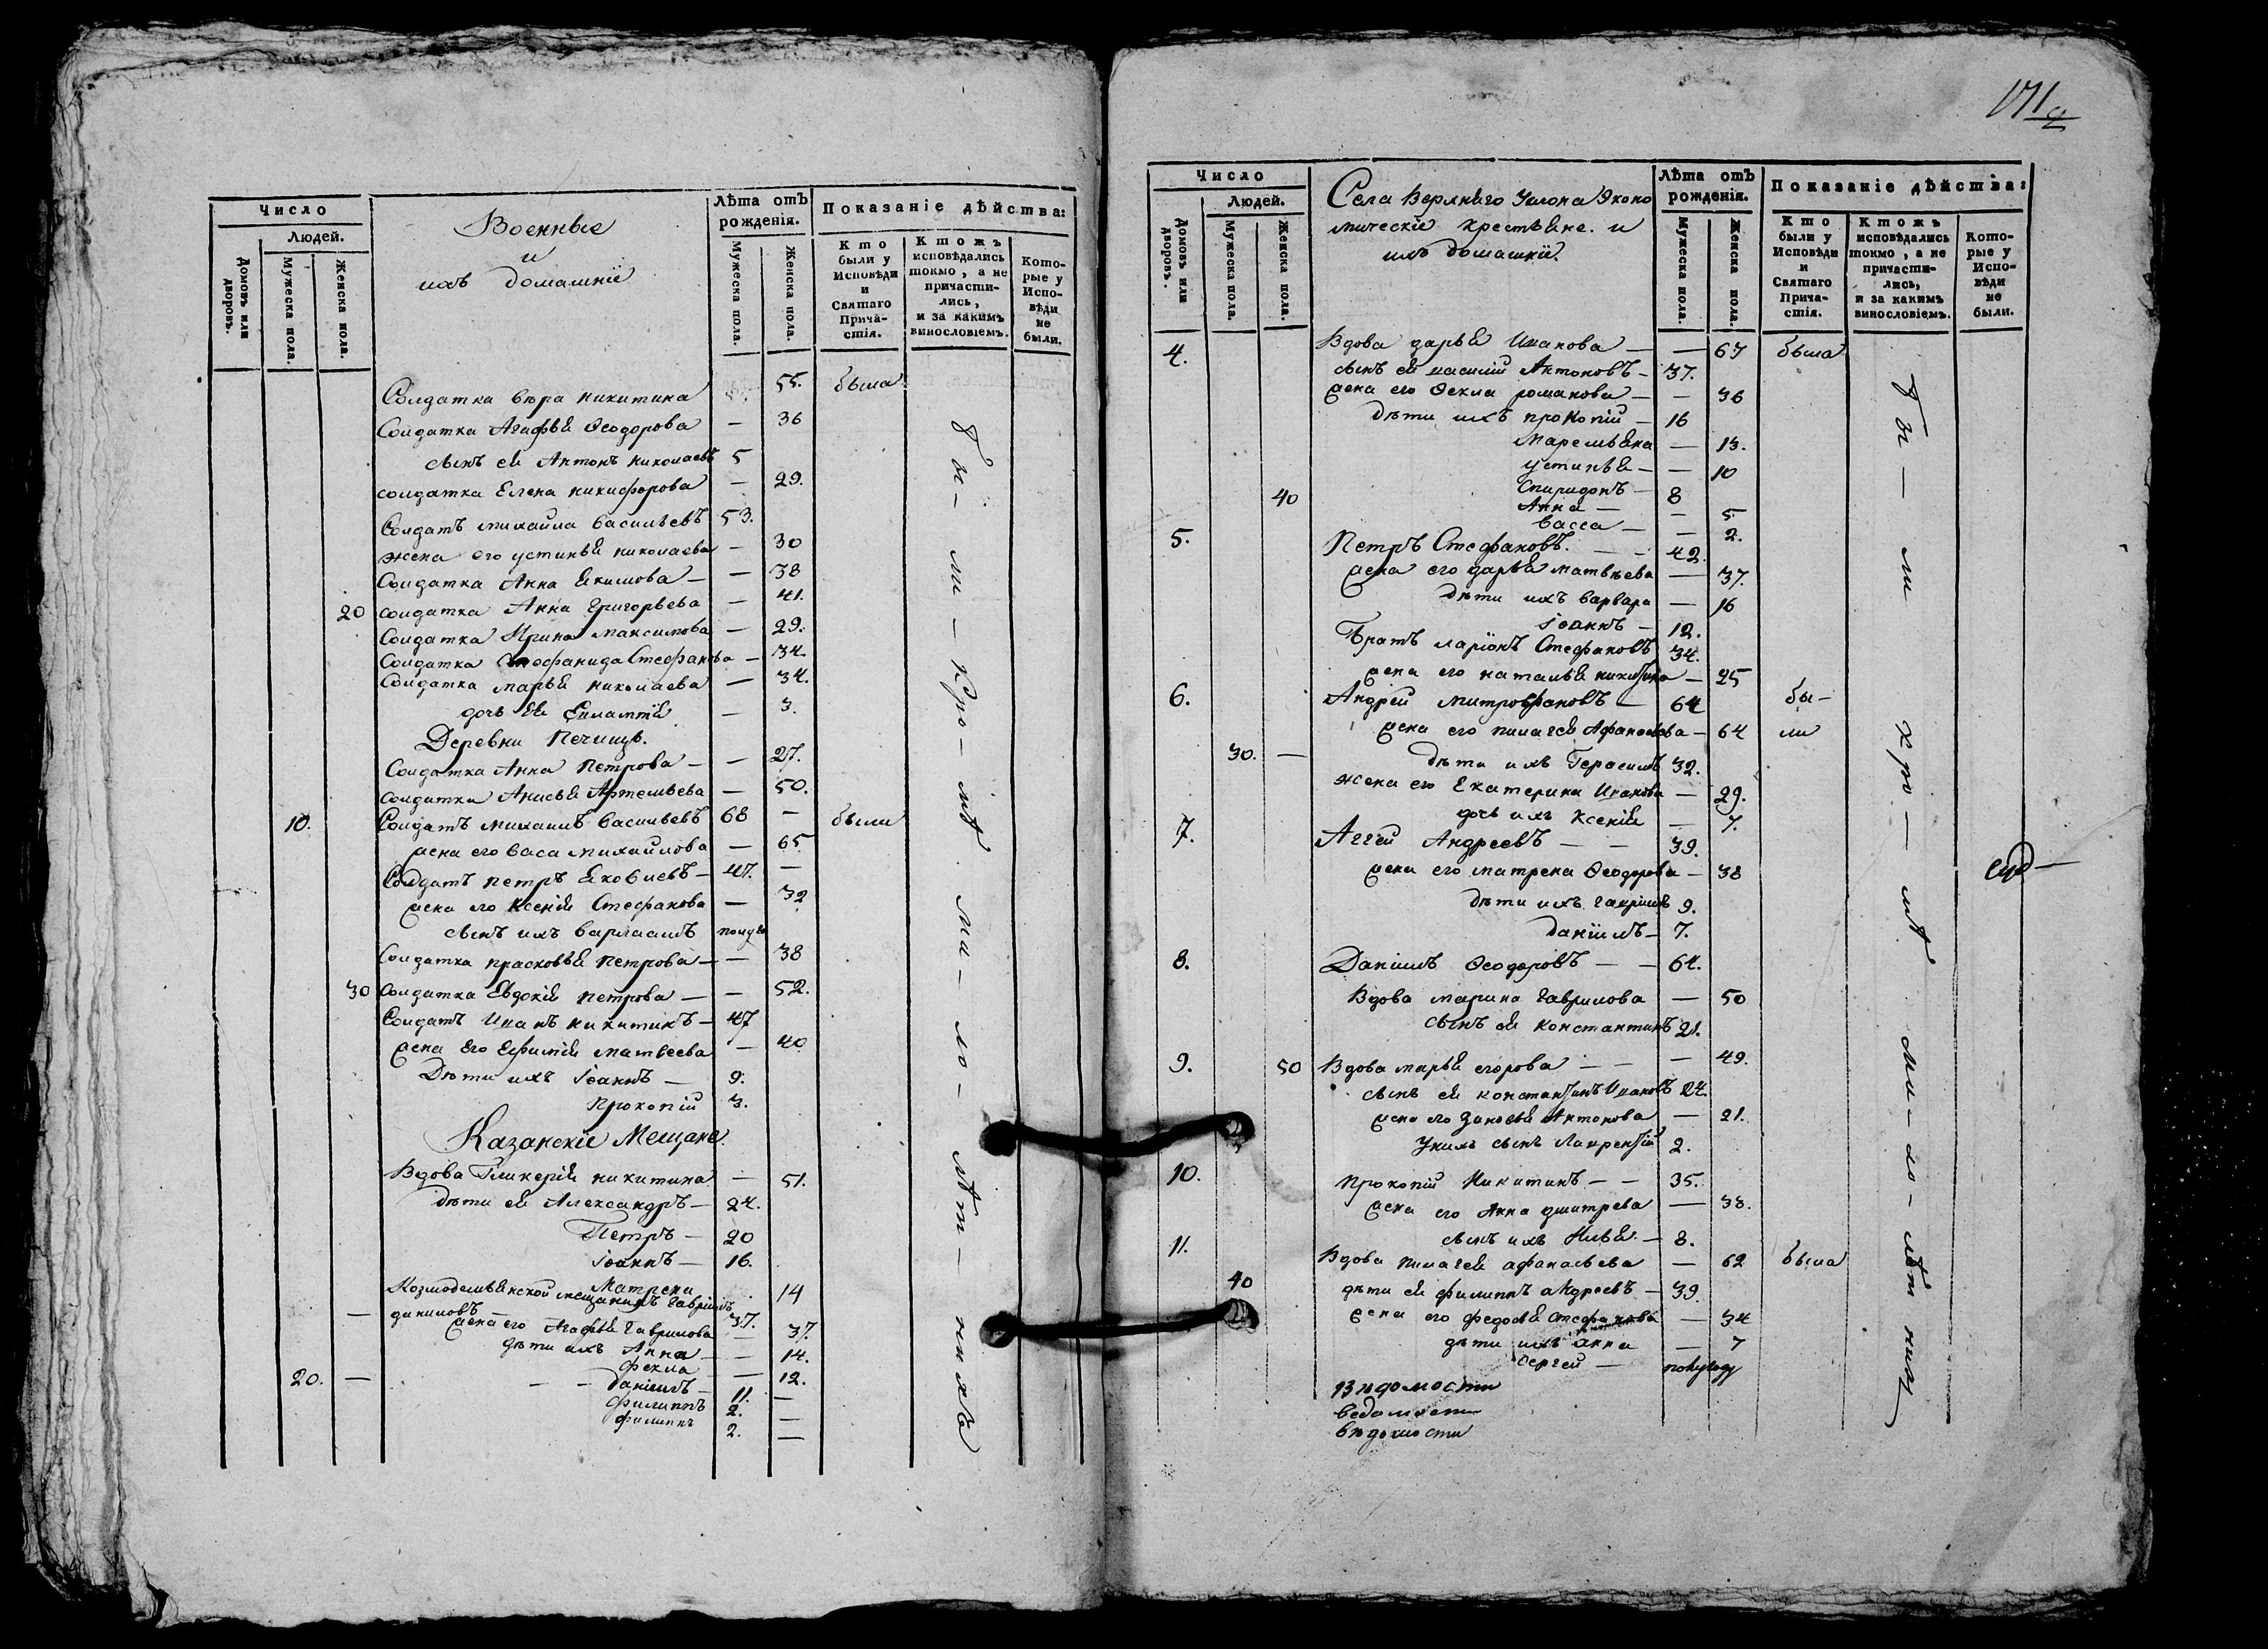 Число
Людей.
Домовъ или дворовъ.
Мужеска пола.
Женска пола.
Военные
и
ихъ домашніе
Лѣта отъ рожденія.
Мужеска пола.
Женска пола.
Показаніе дѣйства:
Кто были у Исповѣди и Святаго Причастія.
Ктожъ исповѣдались токмо, а не причастились, и за какимъ винословіемъ.
Которые у Исповѣди не были.
Солдатка вѣра никитина 55. была
Солдатка Агафья Ѳеодорова — 36
сынъ ея Антонъ николаевъ 5
солдатка Елена никифорова — 29.
Солдатъ михайла васильевъ 53.
жена его устинья николаева — 30
Солдатка Анна Якимова — — 38
20 солдатка Анна Григорьева — 41.
Солдатка Ирина максимова — 29.
Солдатка Стефанида Стефанова — 34.
Солдатка марья николаева — 34.
дочь ея — 3.
Деревни Печищъ.
Солдатка Анна Петрова — — 27.
солдатка Анисья Артемьева — 50.
10. Солдатъ михаилъ васильевъ 68 — были
жена его васа михайлова — 65
Солдатъ петръ Яковлевъ — 47. —
жена его Ксенія Стефанова — 32
сынъ ихъ варлаамъ полуго
Солдатка прасковья петрова — — 38
30 солдатка Евдокія петрова — — 52.
Солдатъ Иванъ никитинъ — 47
жена его Ефимія матвеева — 40
Дѣти ихъ Іоаннъ — 9.
Прокопій 3.
Казанскіе Мещане.
Вдова Гликерія никитина — 51.
дѣти ея Александръ — 24.
Петръ — 20
Іоаннъ — 16.
Матрена 14
Козмодемьянской мещанинъ Гавріилъ
даниловъ — 37.
жена его Агафья Гаврилова — 37.
дѣти ихъ Анна — — 14.
Фекла — 12.
20. — — — Даніилъ — 11. —
Филиппъ 2. —
филиппъ 2. —
бы — ли — хро — мѣ ма — ло — лѣт — нихъ
171
Число
Людей.
Домовъ или дворовъ.
Мужеска пола.
Женска пола.
Села Верхняго Услона Эконо
мическіе крестьяне. и
ихъ домашніе.
Лѣта отъ рожденія.
Мужеска пола.
Женска пола.
Показаніе дѣйства:
Кто были у Исповѣди и Святаго Причастія.
Ктожъ исповѣдались токмо, а не причастились, и за какимъ винословіемъ.
Которые у Исповѣди не были.
4. Вдова дарья Иванова — — 67 была
сынъ ея василій Антоновъ — 37.
жена его Ѳекла романова — — 36
дѣти ихъ прокопій — 16
Маремьяна — 13.
устинья — — 10
40 Спиридонъ — 8
Анна — — 5
васса — — 2.
5. Петръ Стефановъ. — — 42.
жена его дарья матвѣева — 37.
дѣти ихъ варвара — 16
Іоаннъ — 12.
Братъ ларіонъ Стефановъ 34.
жена его наталья никитина — 25
6. Андрей митрофановъ — 64 бы —
жена его пилагея Афанасьева — 64 ли
30. — дѣти ихъ Герасимъ 32.
жена его Екатерина Иванова — 29.
дочь ихъ Ксенія — 7.
7. Аггей Андреевъ — — 39.
жена его матрена Ѳеодорова — 38
дѣти ихъ гавріилъ 9.
даніилъ — 7.
8. Даніилъ Ѳеодоровъ — — 64.
Вдова марина гаврилова — 50
сынъ ея константинъ 21.
9. 50 Вдова марья егорова — — — 49.
сынъ ея константинъ Ивановъ 24.
жена его Зиновья Антонова — 21.
Унихъ сынъ Лаврентій 2.
10. Прокопій Никитинъ — — 35.
жена его Анна дмитрева — 38.
сынъ ихъ Илья — 8.
11. Вдова пилагея афанасьева — 62 была
40 дѣти ея филиппъ андреевъ — 39.
жена его федосья стефанова — 34
дѣти ихъ анна — 7
Сергей — полугоду
Вѣдомости
ведомости
вѣдомости
бы — ли хро — мѣ ма — ло — лѣт нихъ